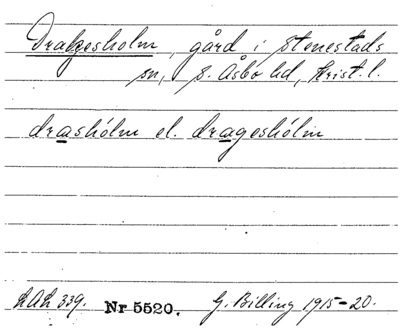 Drakesholm, gård i Stenestads
sn, S. Åsbo hd, Krist. l.
drashólm el. drageshólm
LAL 339. Nr 5520. G. Billing 1915-20.